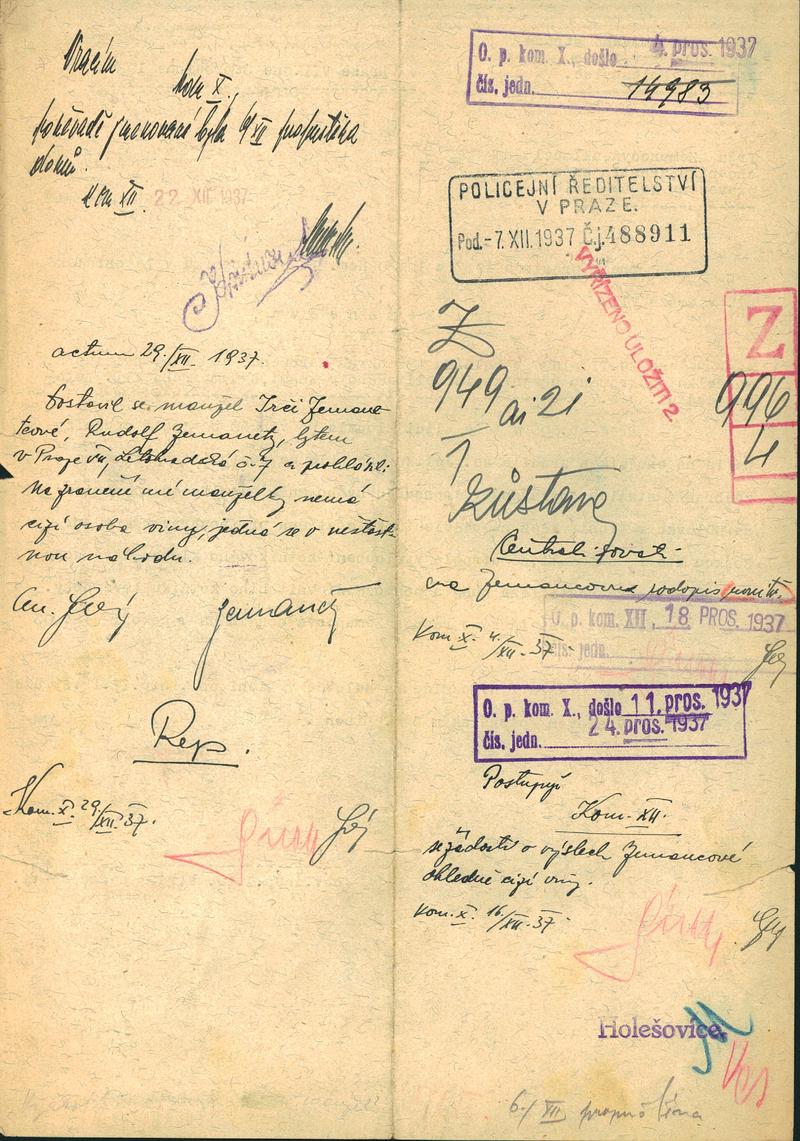 Vracím
kom X.,
poněvadž jmenovaná byla 6/XII propuštěna
domů.
Kom XII. 22 XII 1937
actum 29./XII. 1937.
Dostavil se manžel Irči Zemane-
tcové, Rudolf Zemanetz, bytem
v Praze VII, Letohradská č. 7 a prohlásil:
Na zranění mé manželky nemá
cizí osoba viny, jedná se o nešťast-
nou náhodu.
Zemanetz
Rep.
Kom. X. 29/XII. 37.
O. p. kom. X., došlo 4. pros. 1937
čís. jedn. 14983
POLICEJNÍ ŘEDITELSTVÍ
V PRAZE.
Pod. - 7. XII. 1937 Č.j. 488911
VYŘÍZENO ULOŽITI 2.
Z
Z
949 ai 21
996
1
4
Zůstane
na Zemancovou
O. p. kom. XII, 18 PROS. 1937
čís. jedn.
Kom. X. 4./XII. 37.
O. p. kom. X., došlo 11. pros. 1937
24. pros. 1937
čís. jedn.
Postupuji
Kom. XII.
se žádostí o výslech Zemancové
ohledně cizí viny.
Kom. X. 16/XII. 37.
Holešovice.
6./XII propuštěna